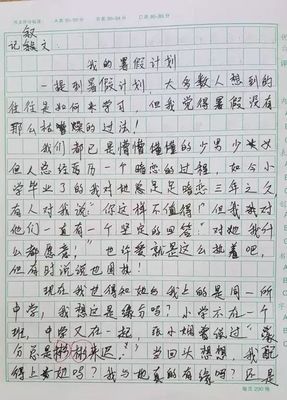 叙
记叙文:
我的暑假计划
一提到暑假计划,大多数人想到的
往往是如何来学习,但我觉得暑假没有
那么枯燥的过法!
我们都已是懵懵懂懂的少男少女
但人总经历一个暗恋的过程,如今小
学毕业了的我对她足足暗恋三年之久
有人对我说“你这样不值得!”但我我对
他们一直有一个坚定的回答“对她我什
么都愿意!”也许爱就是这么执着吧,
但有时说说也困扰!
现在我也得知她与我上的是同一所
中学,我想这是缘分吗?小学不在一个
班,中学又在一起,张小娴曾说过“缘
分总是姗姗来迟.”当回头想想,我配
得上她吗?我与她真的有缘吗?还是
每页290格